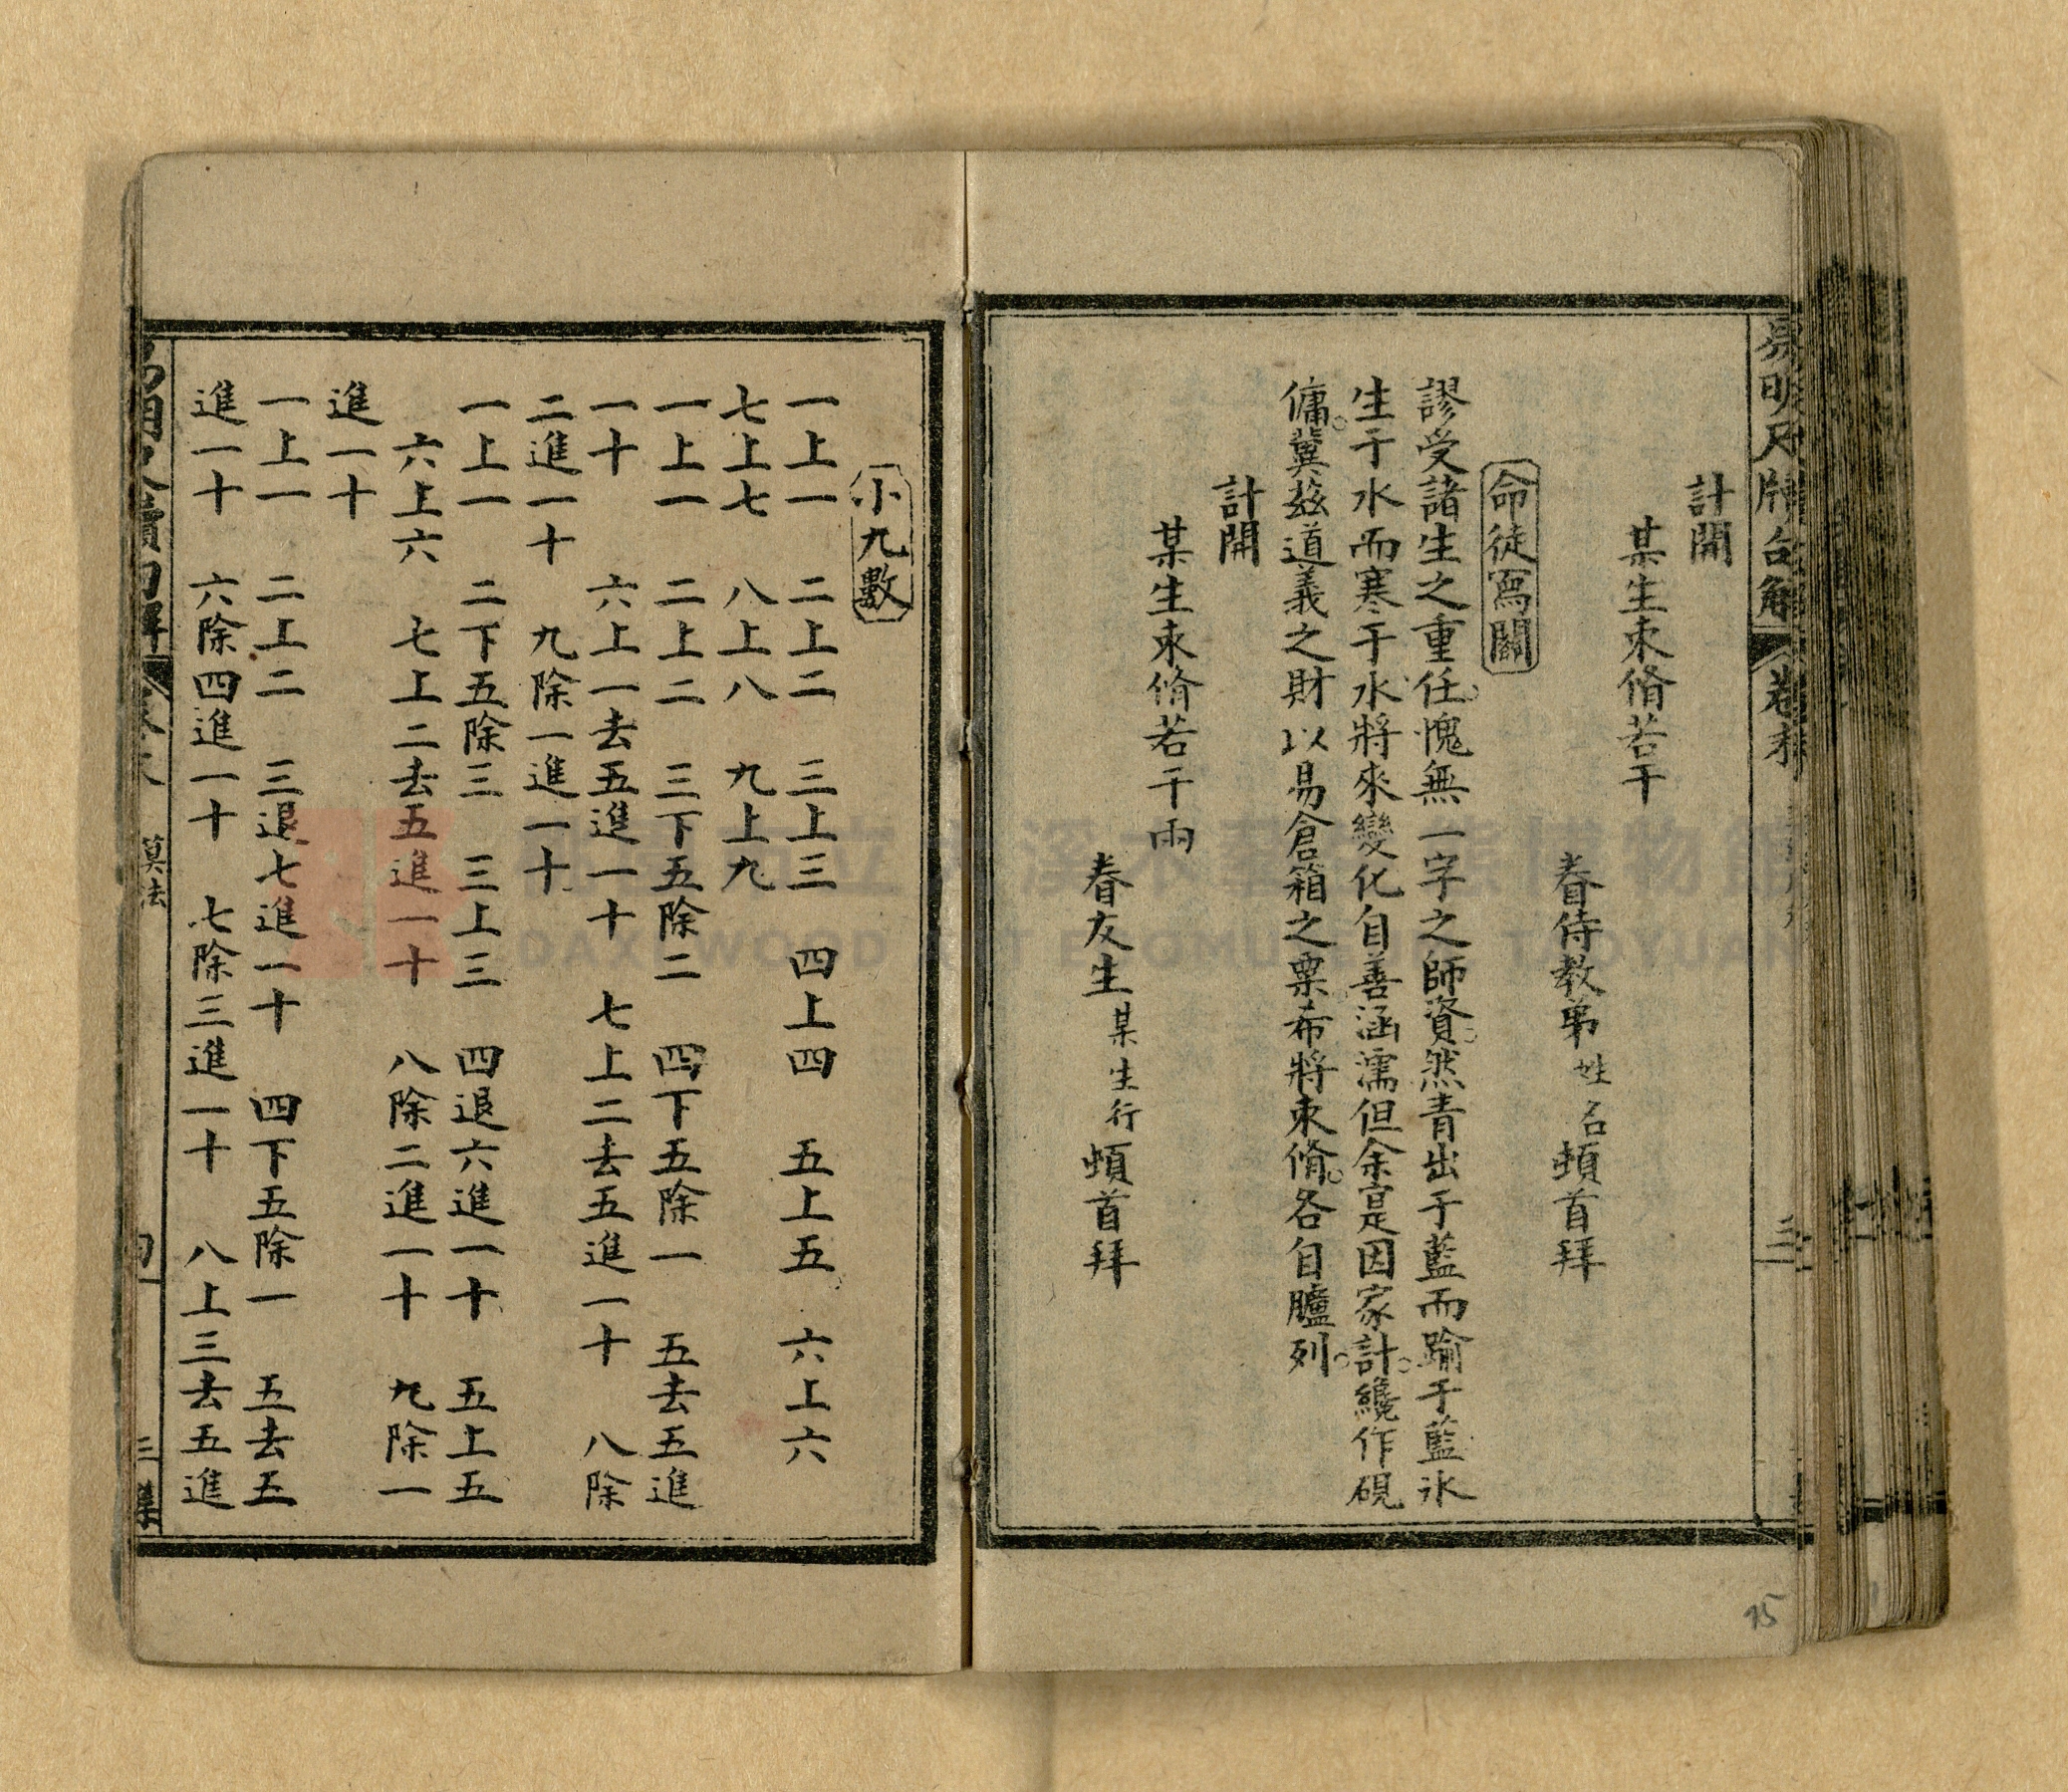 計開
某生束脩若干
眷侍教弟姓名頓首拜
命徒寫關
謬受諸生之重任。愧無一字之師資。然青出于藍而踰于藍氷
生于水而寒于水將來變化自善涵濡但余寔因家計。纔作硯
傭。冀茲道義之財以易倉箱之粟希將束脩。各自臚列。
計開
某生束脩若干兩
眷友生某生行頓首拜
三
卷末
75
小九數
一上一 二上二 三上三 四上四 五上五 六上六
七上七 八上八 九上九
一上一 二上二 三下五除二 四下五除一 五去五進
一十 六上一去五進一十 七上二去五進一十 八除
二進一十 九除一進一十
一上一 二下五除三 三上三 四退六進一十 五上五
六上六 七上二去五進一十 八除二進一十 九除一
進一十
一上一 二上二 三退七進一十 四下五除一 五去五
進一十 六除四進一十 七除三進一十 八上三去五進
DAXI WOOD ART ECOMUSEUM TAOYUAN